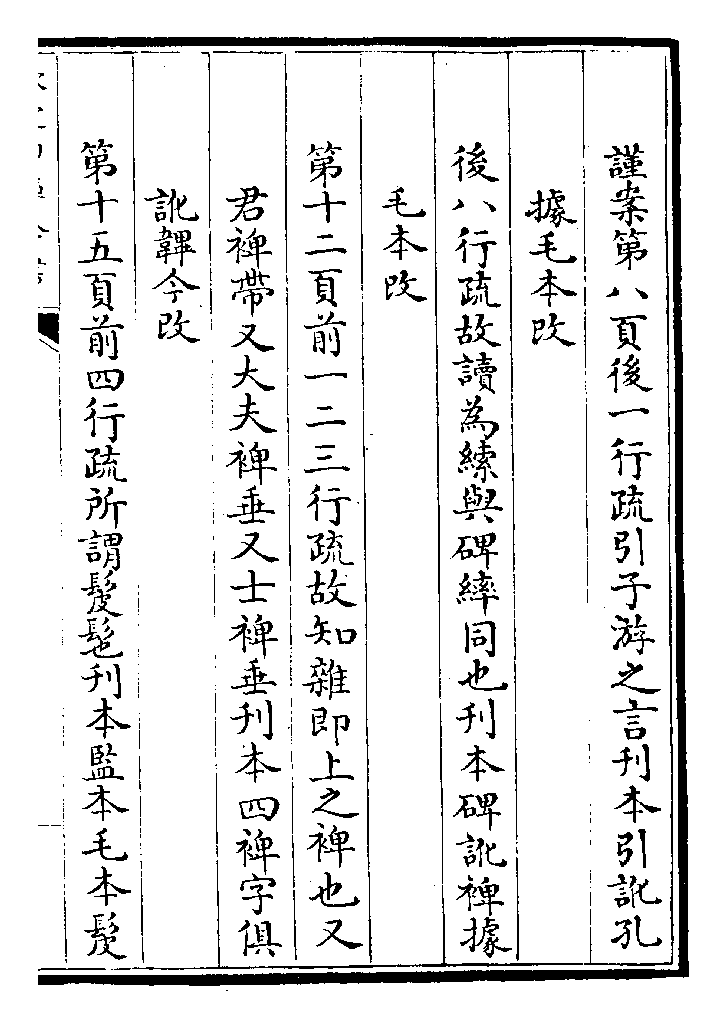 謹案第八頁後一行疏引子游之言刊本引訛孔
據毛本改
後八行疏故讀為繂與碑繂同也刊本碑訛裨據
毛本改
第十二頁前一二三行疏故知雜即上之裨也又
君裨帶又大夫裨垂又士裨垂刊本四裨字俱
訛鞸今改
第十五頁前四行疏所謂髲髢刊本監本毛本髲